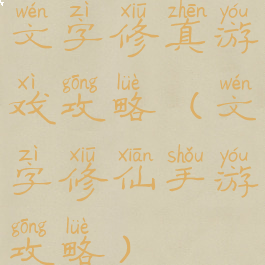 wén zì xiū zhēn yóu
文字修真游
xì gōng lüè wén
戏攻略（文
zì xiū xiān shǒu yóu
字修仙手游
gōng lüè
攻略）